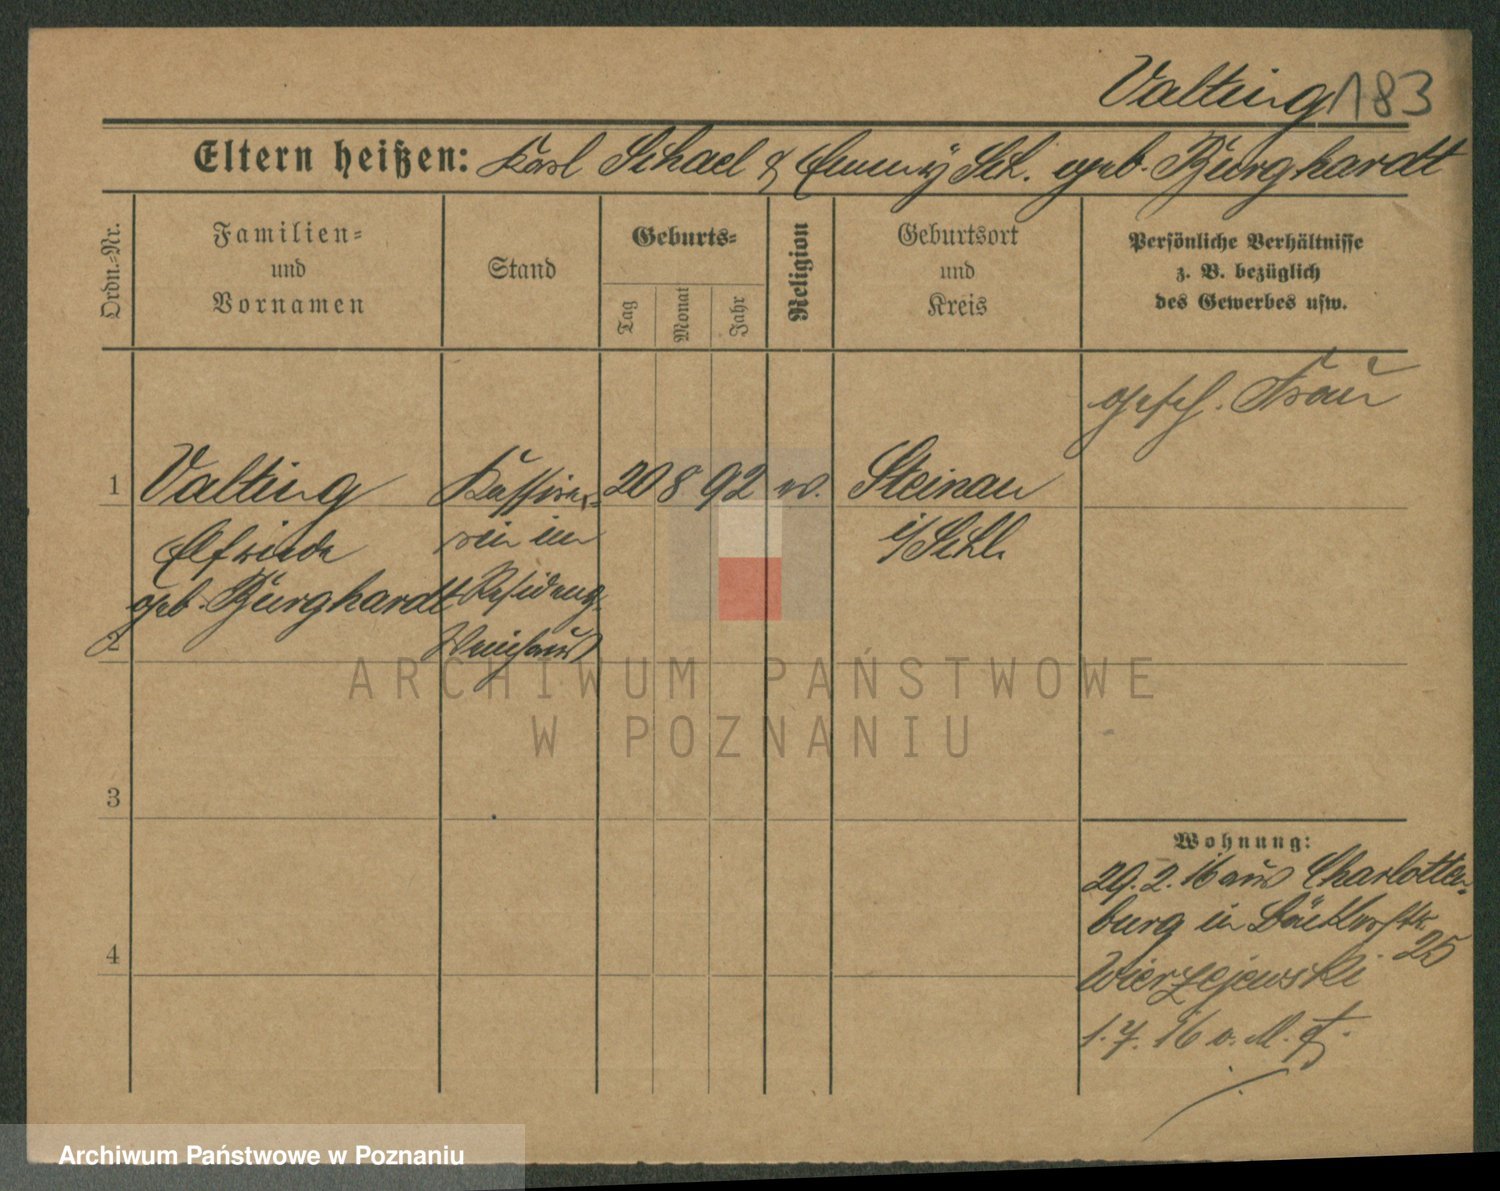 Valting 183
Eltern heißen: Karl Schael & Emmy Sch. geb. Burghardt
Ordn.-Nr.
Familien-
und
Vornamen
Stand
Geburts-
Tag
Monat
Jahr
Religion
Geburtsort
und
Kreis
Persönliche Verhältnisse
z. B. bezüglich
des Gewerbes usw.
gesch. Frau
1 Valting Kassire- 20 8 92 ev. Steinau
Elfriede rin im i/Schl.
geb. Burghardt Residenz
2 Weinhaus
ARCHIWUM PAŃSTWOWE
W POZNANIU
3
Wohnung:
29. 2. 16 aus Charlotten-
burg in Bäckerstr.
25
4
Wierzejewski
1. 7. 16 o. M.
Archiwum Państwowe w Poznaniu